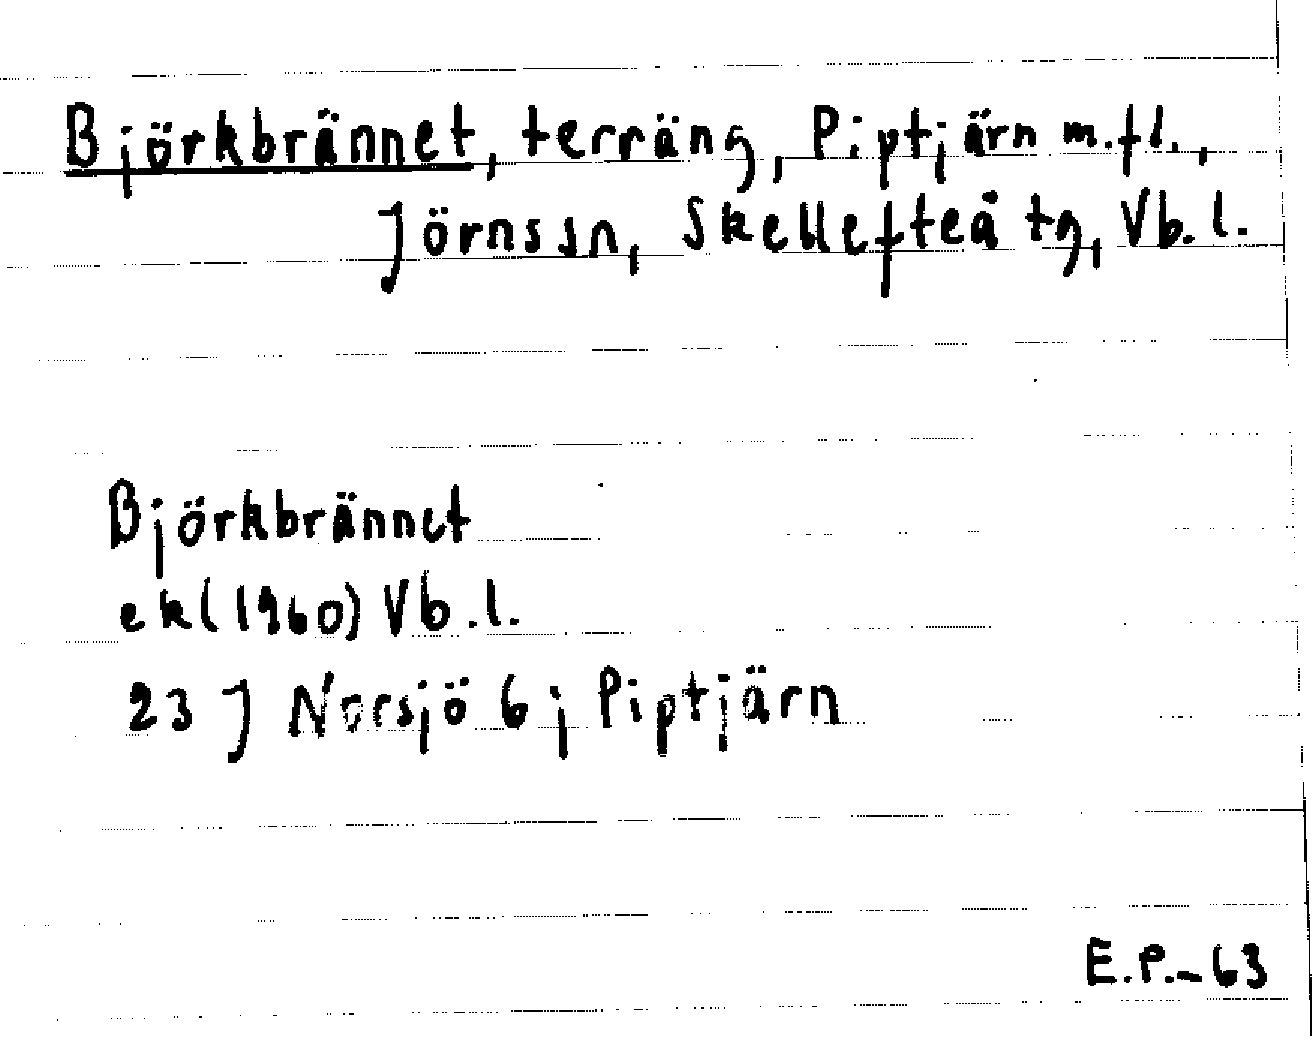 Björkbrännet, terräng, Piptjärn m.fl.,
Jörns sn, Skellefteå tg, Vb. l.
Björkbrännet
ek (1960) Vb. l.
23 J Norsjö 6 j Piptjärn
E.P.-63